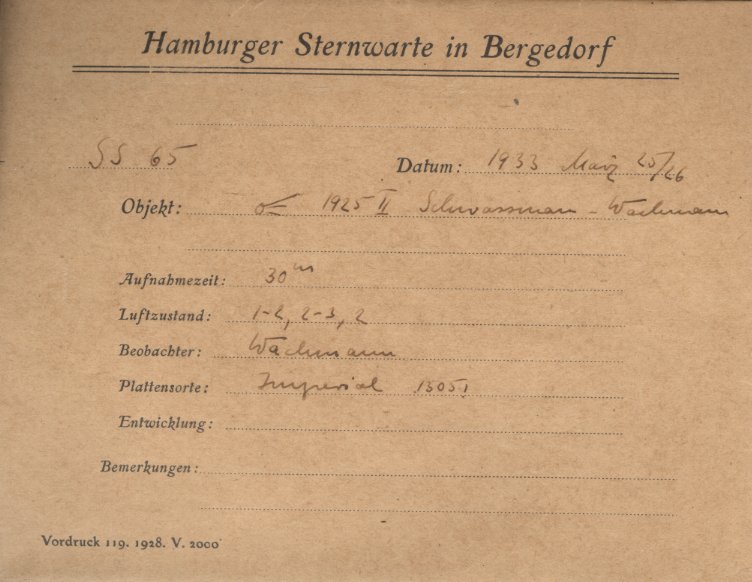 Hamburger Sternwarte in Bergedorf
SS 65
Datum: 1933 März 25/26
Objekt: ☄ 1925 II Schwassmann - Wachmann
Aufnahmezeit: 30m
Luftzustand: 1-2, 2-3, 2
Beobachter: Wachmann
Plattensorte: Imperial 1305I
Entwicklung:
Bemerkungen:
Vordruck 119. 1928. V. 2000